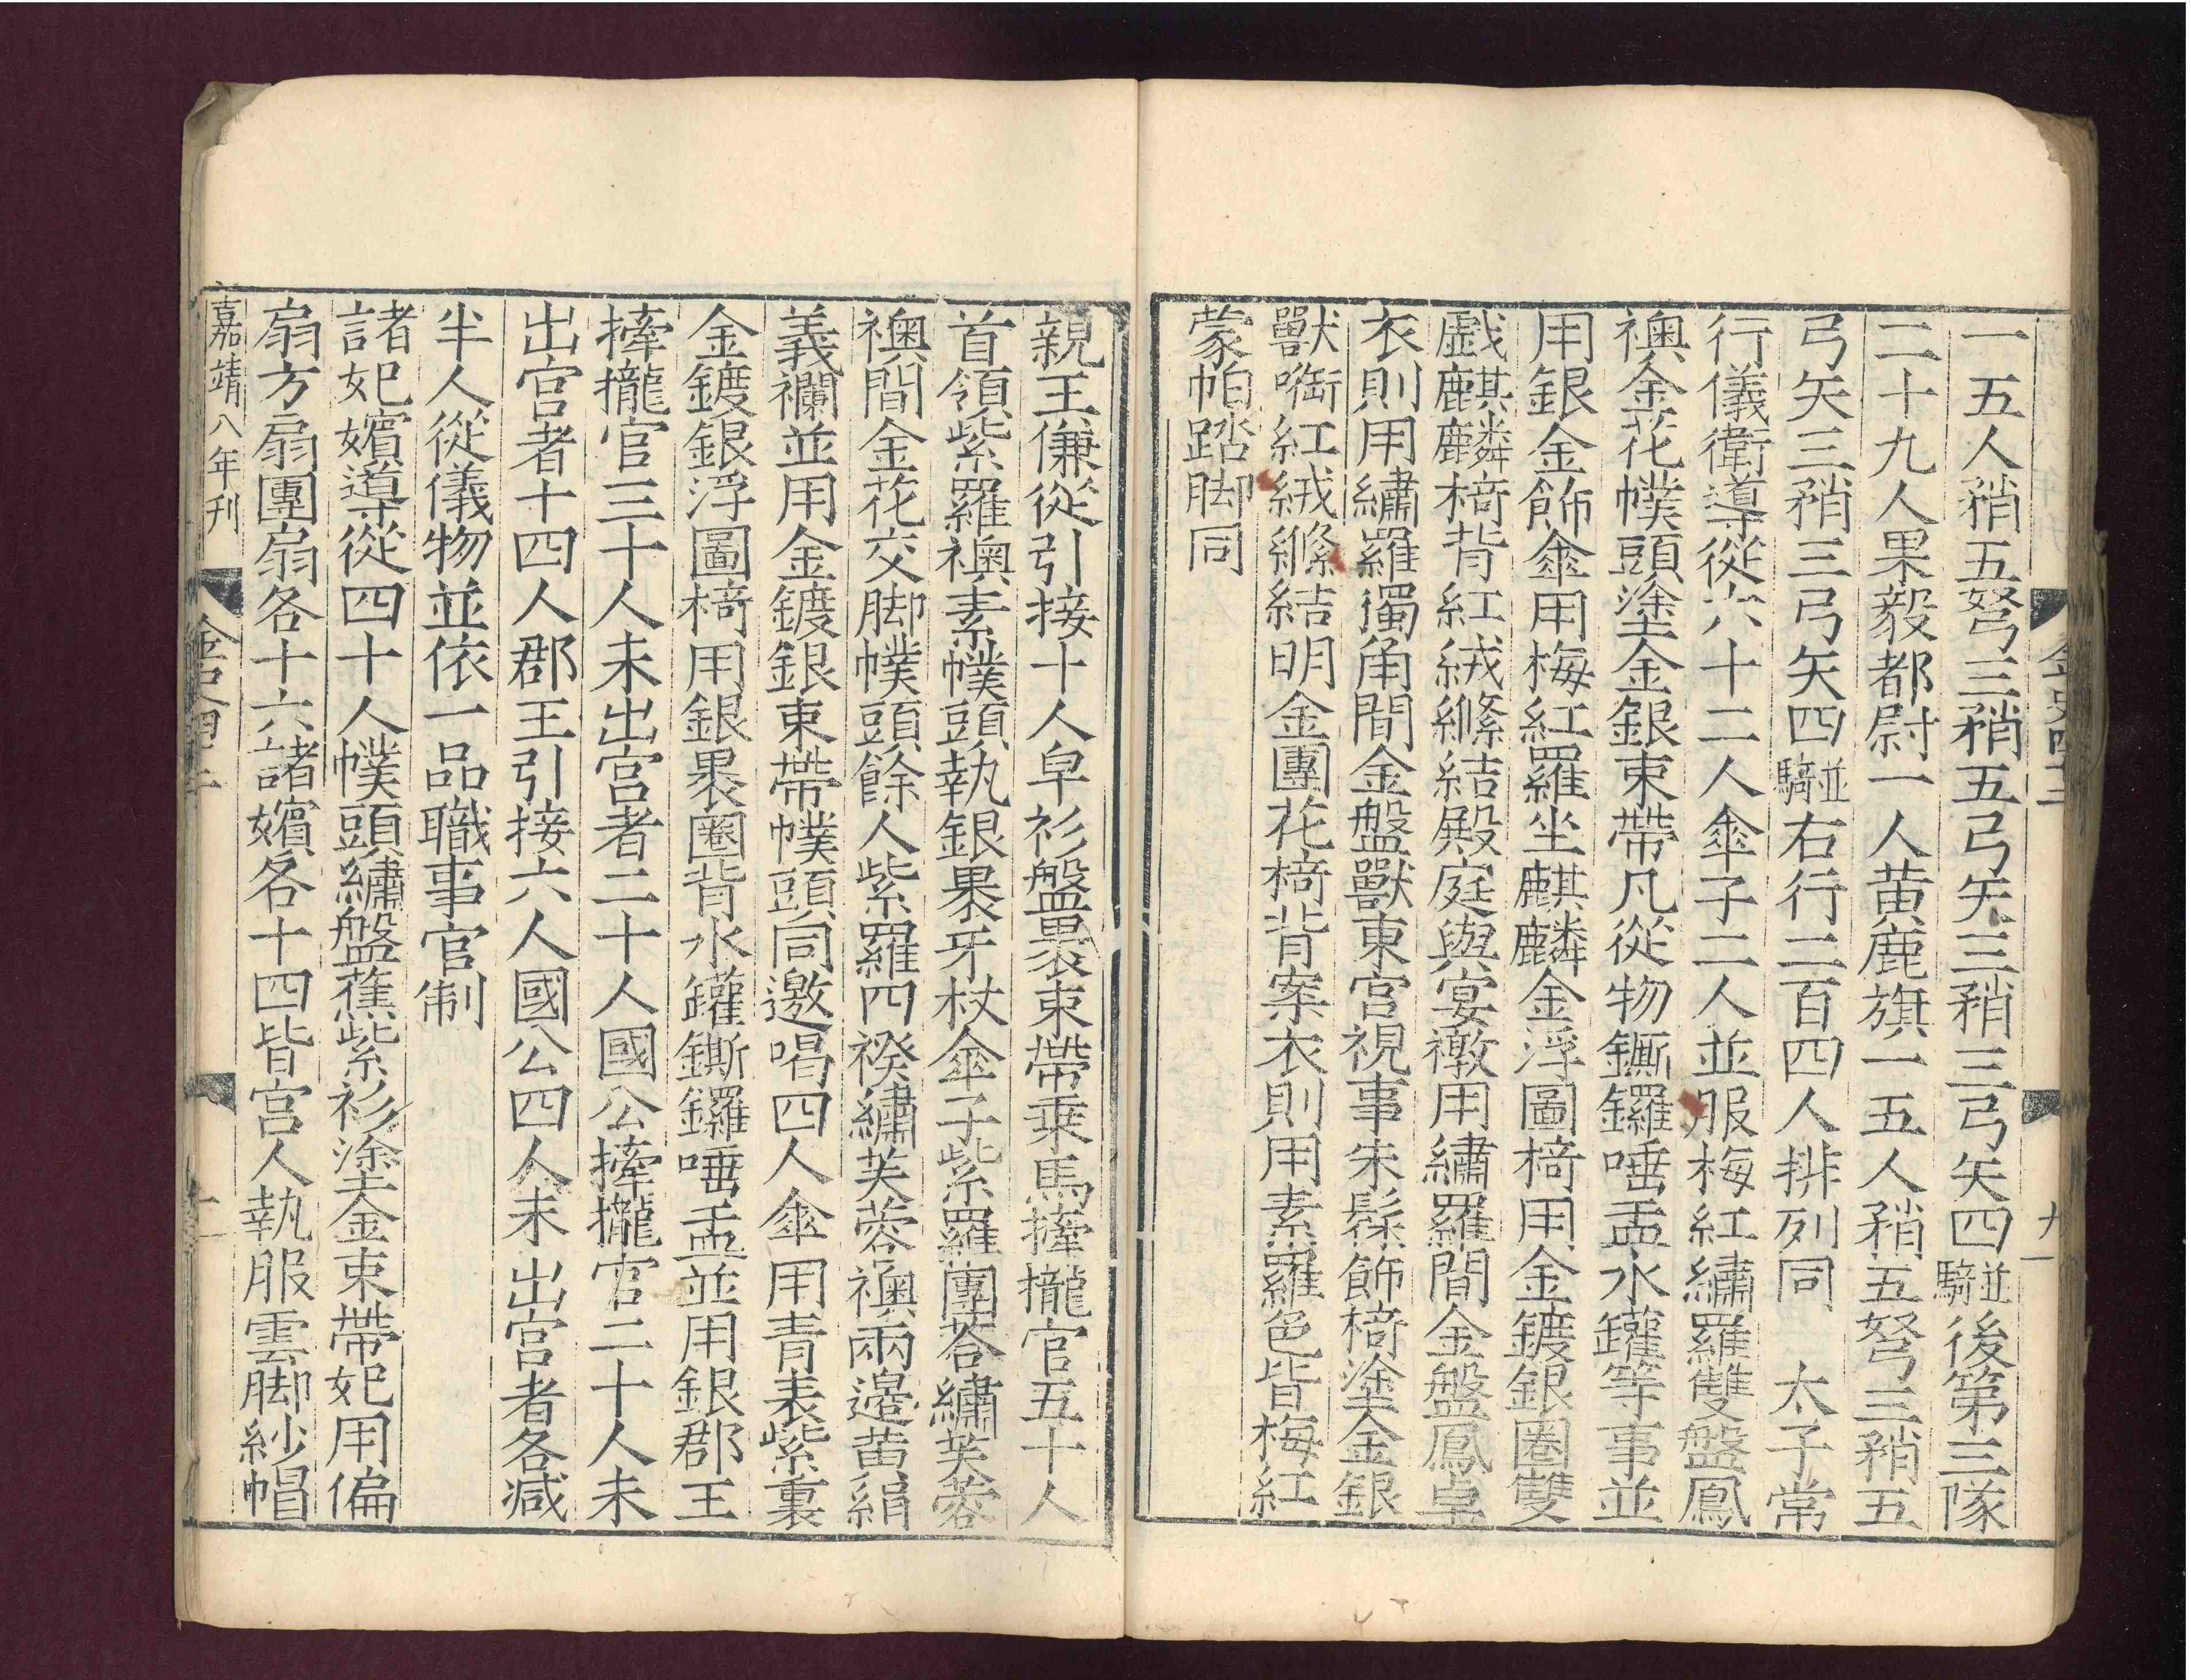 一五人矟五弩三矟五弓矢三矟三弓矢四並騎後第三隊
二十九人果毅都尉一人黄鹿旗一五人矟五弩三矟五
弓矢三矟三弓矢四並騎右行二百四人排列同　太子常
行儀衛導從六十二人傘子二人並服梅紅繡羅雙盤鳳
襖金花幞頭塗金銀束帶凡從物鐁鑼唾盂水罐等事並
用銀金飾傘用梅紅羅坐麒麟金浮圖椅用金鍍銀圈雙
戯麒麟椅背紅絨絛結殿庭與宴襴用繡羅間金盤鳳卓
衣則用繡羅獨角間金盤獸東宮視事朱髹飾椅塗金銀
獸㗸紅絨絛結明金團花椅背案衣則用素羅色皆梅紅
蒙帕踏脚同
金史四十二
九
親王傔從引接十人皁衫盤褁束帶乗馬牽攏官五十人
首領紫羅襖素幞頭執銀褁牙杖傘子紫羅團荅繡芙蓉
襖間金花交脚幞頭餘人紫羅四䙆繡芙蓉襖兩邊黄絹
義襴並用金鍍銀束帶幞頭同邀喝四人傘用青表紫裏
金鍍銀浮圖椅用銀褁圈背水罐鐁鑼唾盂並用銀郡王
牽攏官三十人未出宮者二十人國公牽攏官二十人未
出宮者十四人郡王引接六人國公四人未出宮者各减
半人從儀物並依一品職事官制
諸妃嬪導從四十人幞頭繡盤蕉紫衫塗金束帶妃用偏
扇方扇團扇各十六諸嬪各十四皆宮人執服雲脚紗帽
嘉靖八年刊
金史四十二